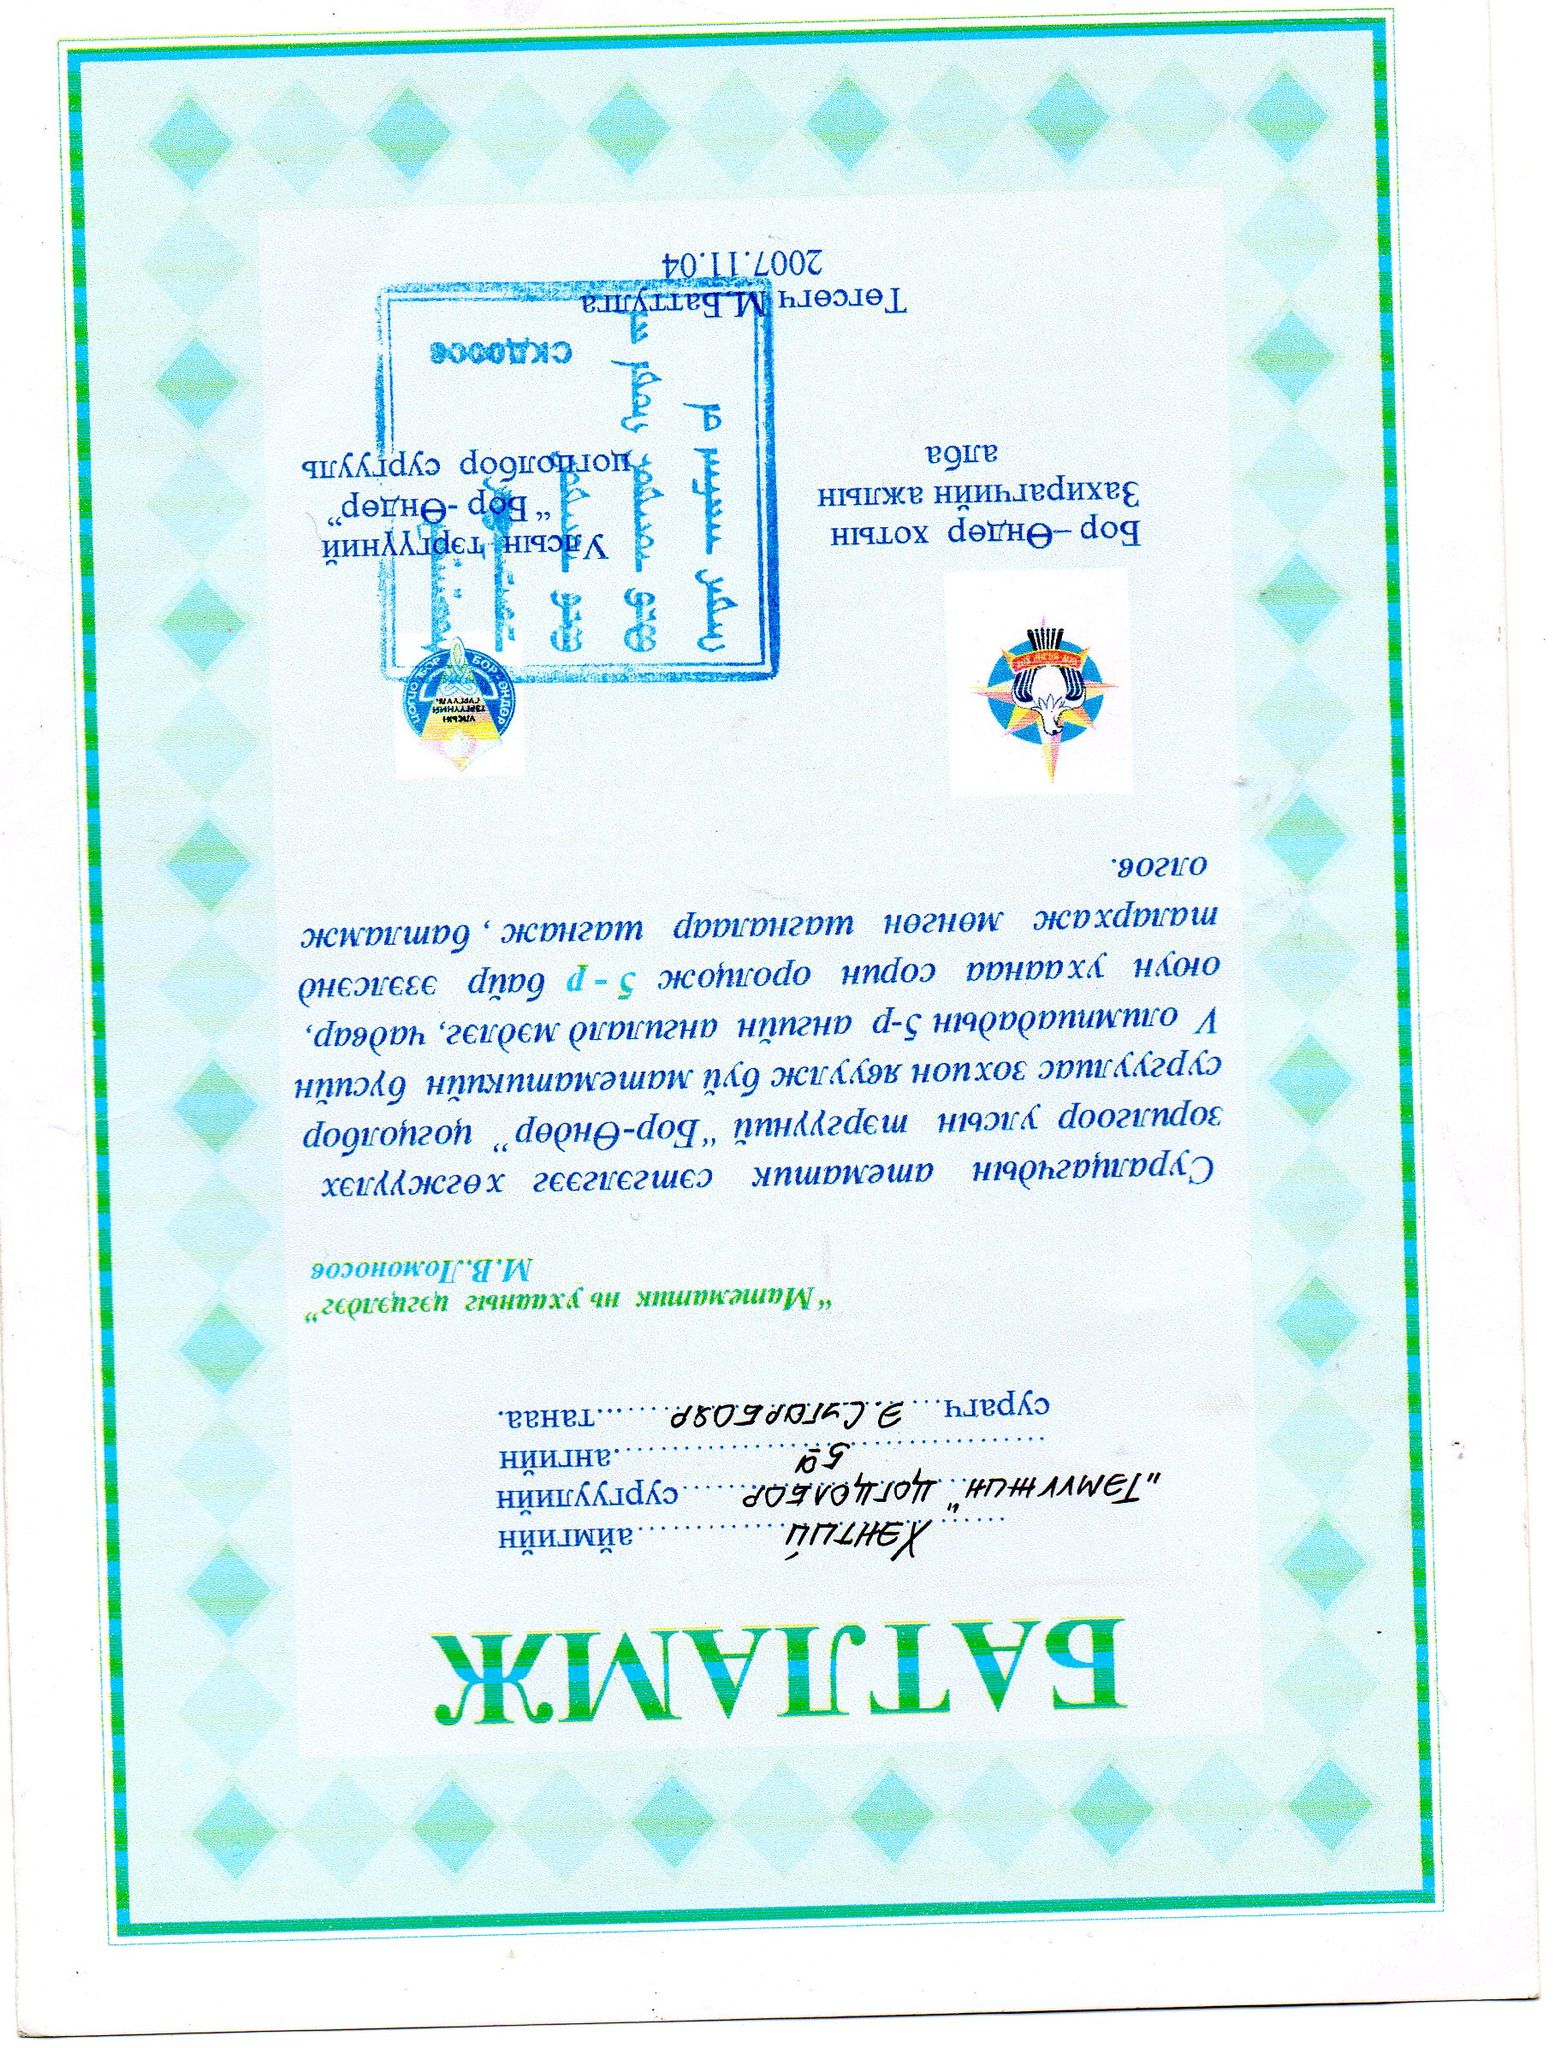 БАТЛАМЖ
......Хэнтий.............аймгийн
„Тэмүүжин“ цогцолбор......сургуулийн
5а.....ангийн
сурагч...Э.Сугарбояр........танаа.
“Математик нь ухааныг цэгцэлдэг”
М.В.Ломоносов
Суралцагчдын атематик сэтгэлгээг хөгжүүлэх
зорилгоор улсын тэргүүний “Бор-Өндөр” цогцолбор
сургуулиас зохион явуулж буй математикийн бүсийн
V олимпиададын 5-р ангийн ангилалд мэдлэг, чадвар,
оюун ухаанаа сорин оролцож 5 - р байр эзэлсэнд
талархаж мөнгөн шагналаар шагнаж , батламж
олгов.
УЛСЫН
ТЭРГҮҮНИЙ
СУРГУУЛЬ
БОР-ӨНДӨР
Бор –Өндөр хотын
Захирагчийн ажлын
алба
Улсын тэргүүний
“ Бор -Өндөр”
цогцолбор сургууль
СКД0008
Төгсөгч М.Баттулга
2007.11.04